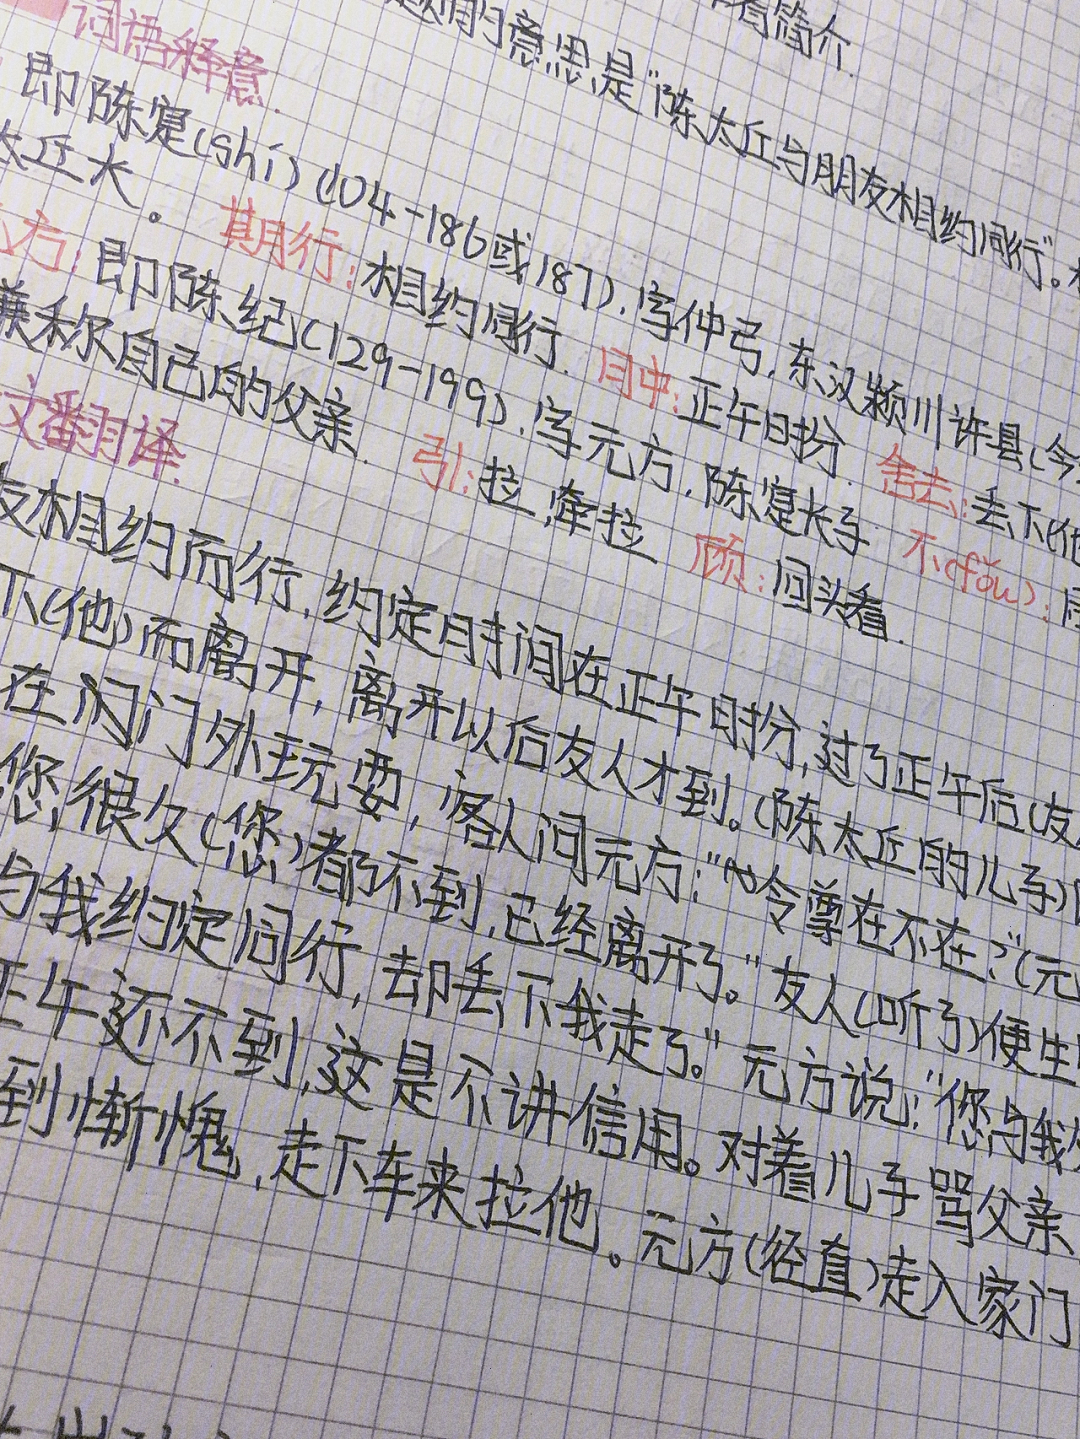 有简介.
题目的意思是"陈太丘与朋友相约同行"。
词语释意.
即陈寔(shí)(104-186或187),字仲弓,东汉颍川许县(今
太丘长。 期行:相约同行. 日中:正午时分. 舍去:丢下(他
方:即陈纪(129-199),字元方,陈寔长子 不(fǒu):
谦称自己的父亲. 引:拉,牵拉 顾:回头看.
文翻译.
友相约而行,约定时间在正午时分,过了正午后(友
下(他)而离开,离开以后友人才到。(陈太丘的儿子)
在门外玩耍,客人问元方:"令尊在不在?"(元
您很久(您)都不到,已经离开了。"友人(听了)便生
与我约定同行,却丢下我走了。"元方说:"您与我
正午还不到,这是不讲信用。对着儿子骂父亲
到惭愧,走下车来拉他。元方(径直)走入家门